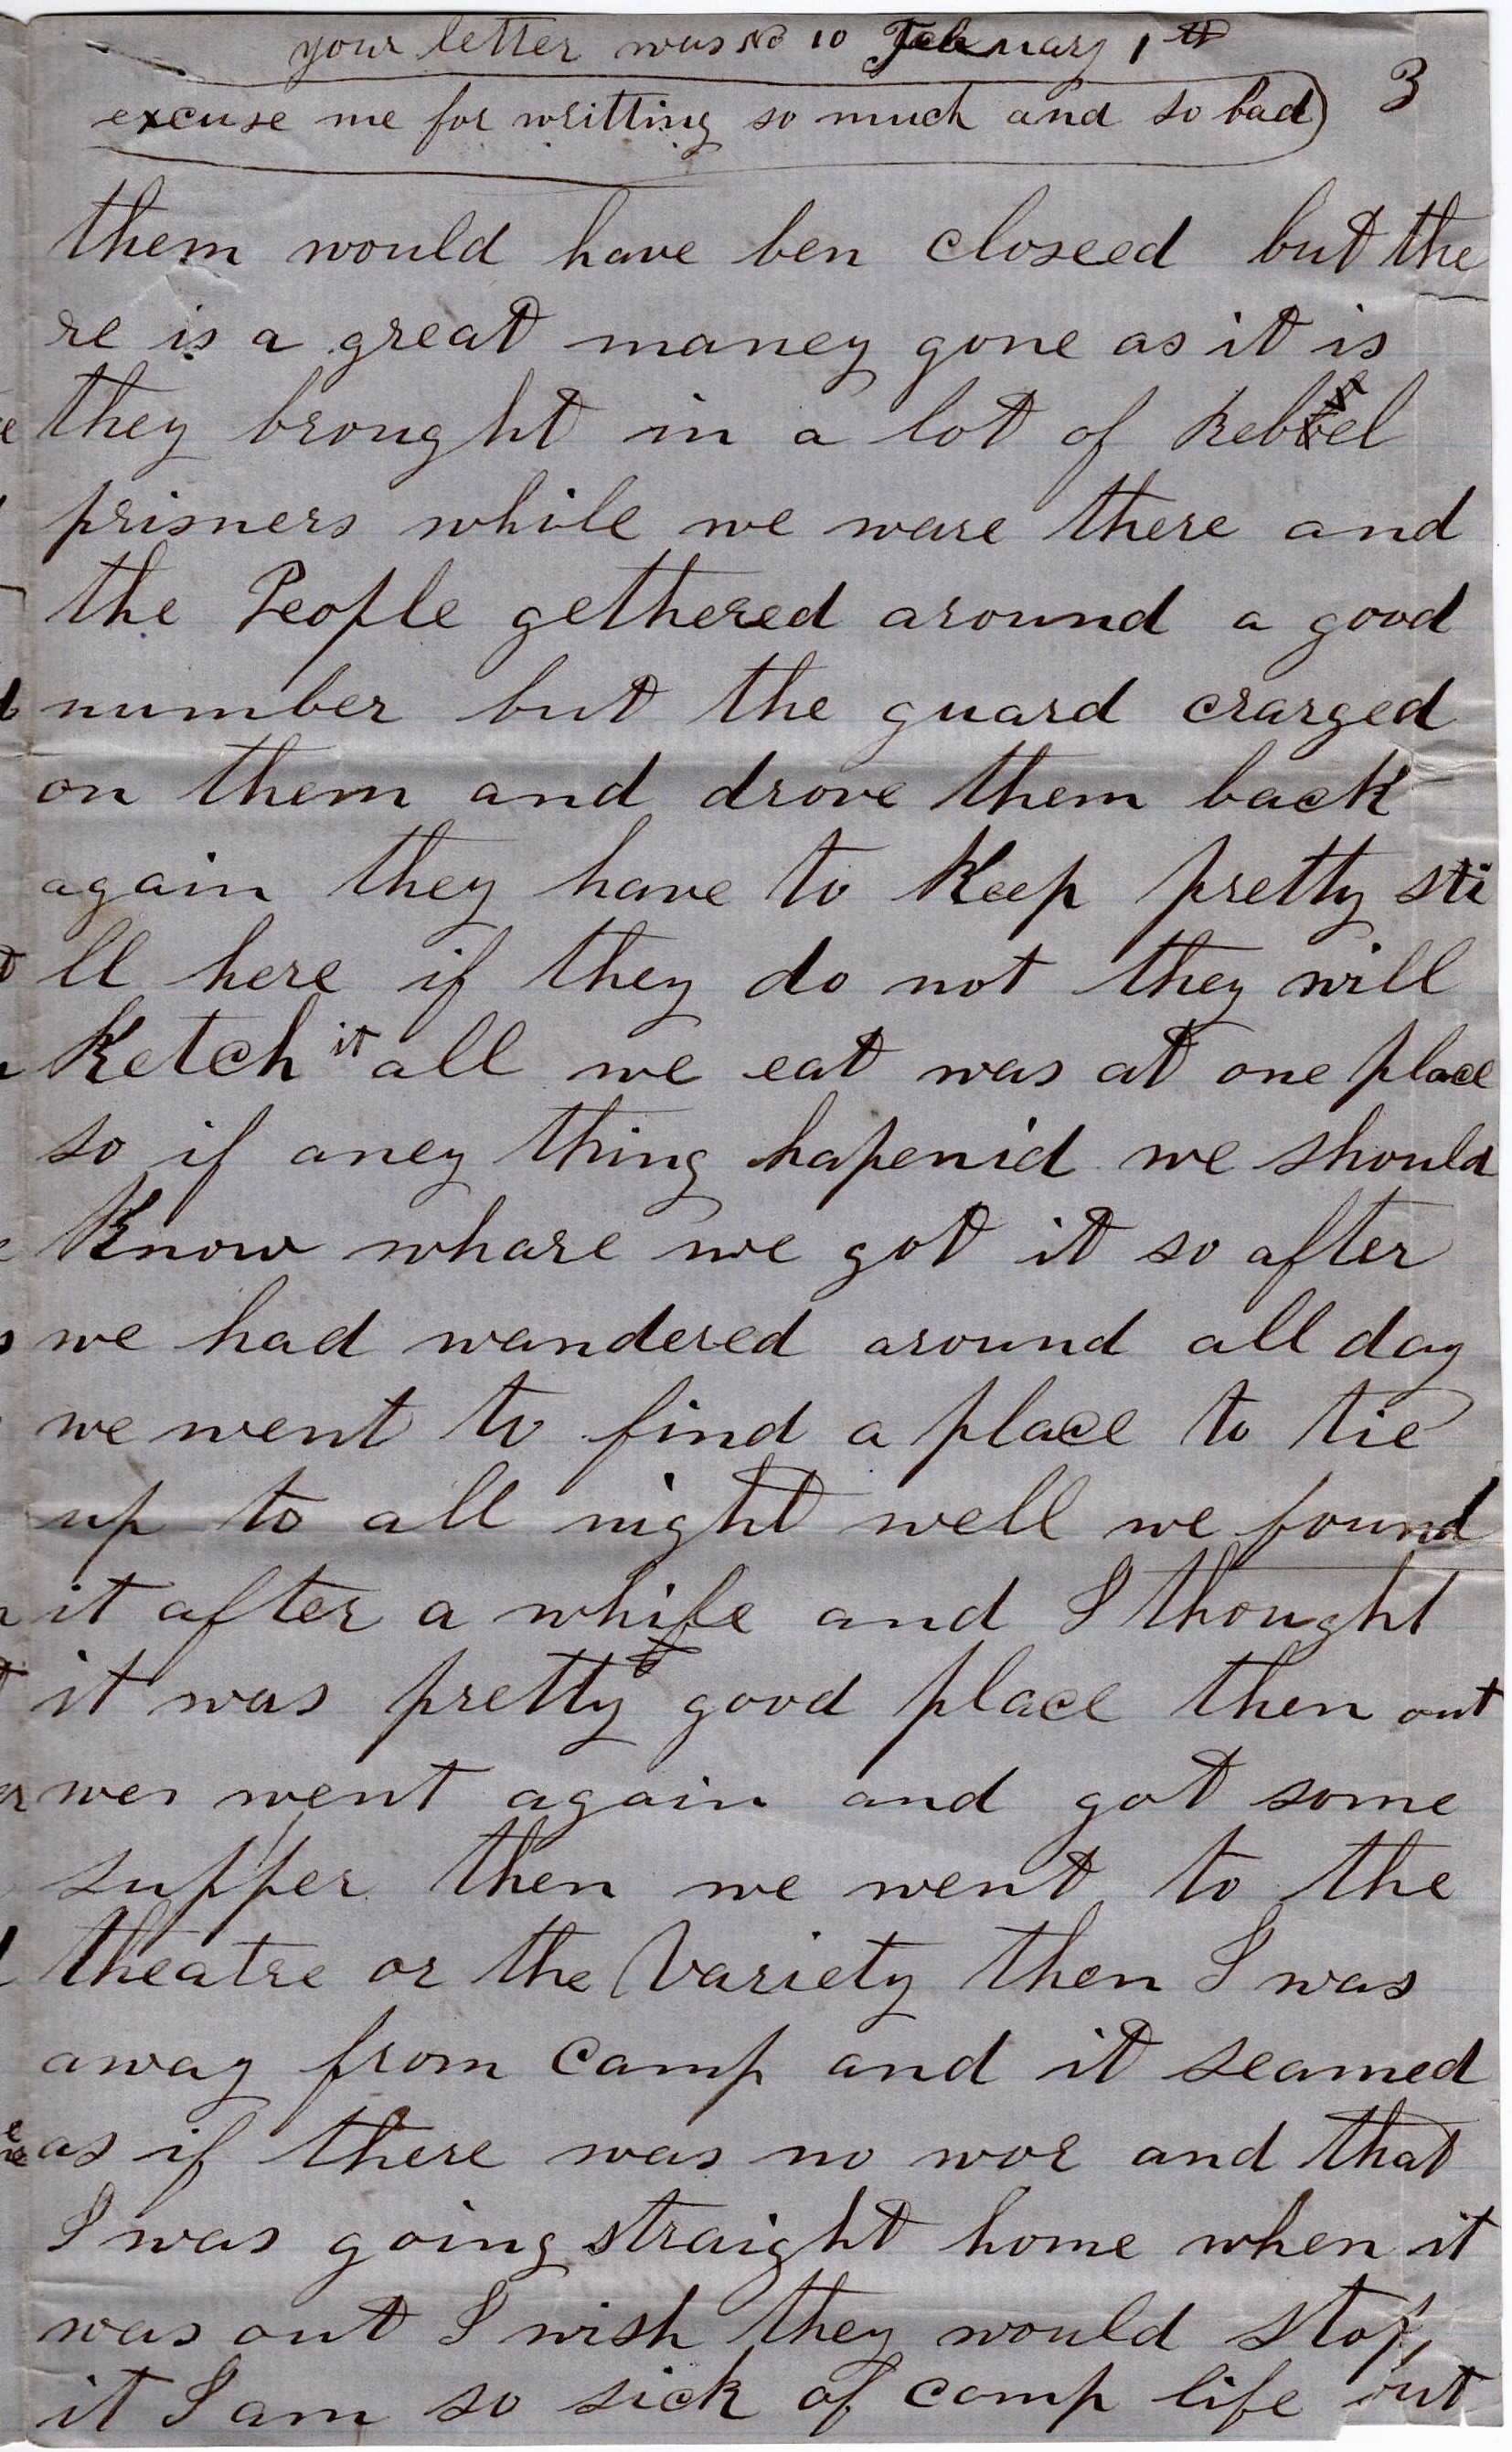 your letter was No 10 February 1th
excuse me for writting so much and so bad
3
them would have ben closeed but the
re is a great maney gone as it is
they brought in a lot of Rebel
prisners while we ware there and
the People gethered around a good
number but the guard crarged
on them and drove them back
again they have to Keep pretty sti
ll here if they do not they will
Ketch it all we eat was at one place
so if aney thing hapenid we should
Know whare we got it so after
we had wandered around all day
we went to find a place to tie
up to all night well we found
it after a while and I thought
it was pretty good place then out
wer went again and got some
supper then we went to the
theatre or the Variety then I was
away from camp and it seamed
as if there was no wor and that
I was going straight home when it
was out I wish they would stop,
it I am so sick of camp life out